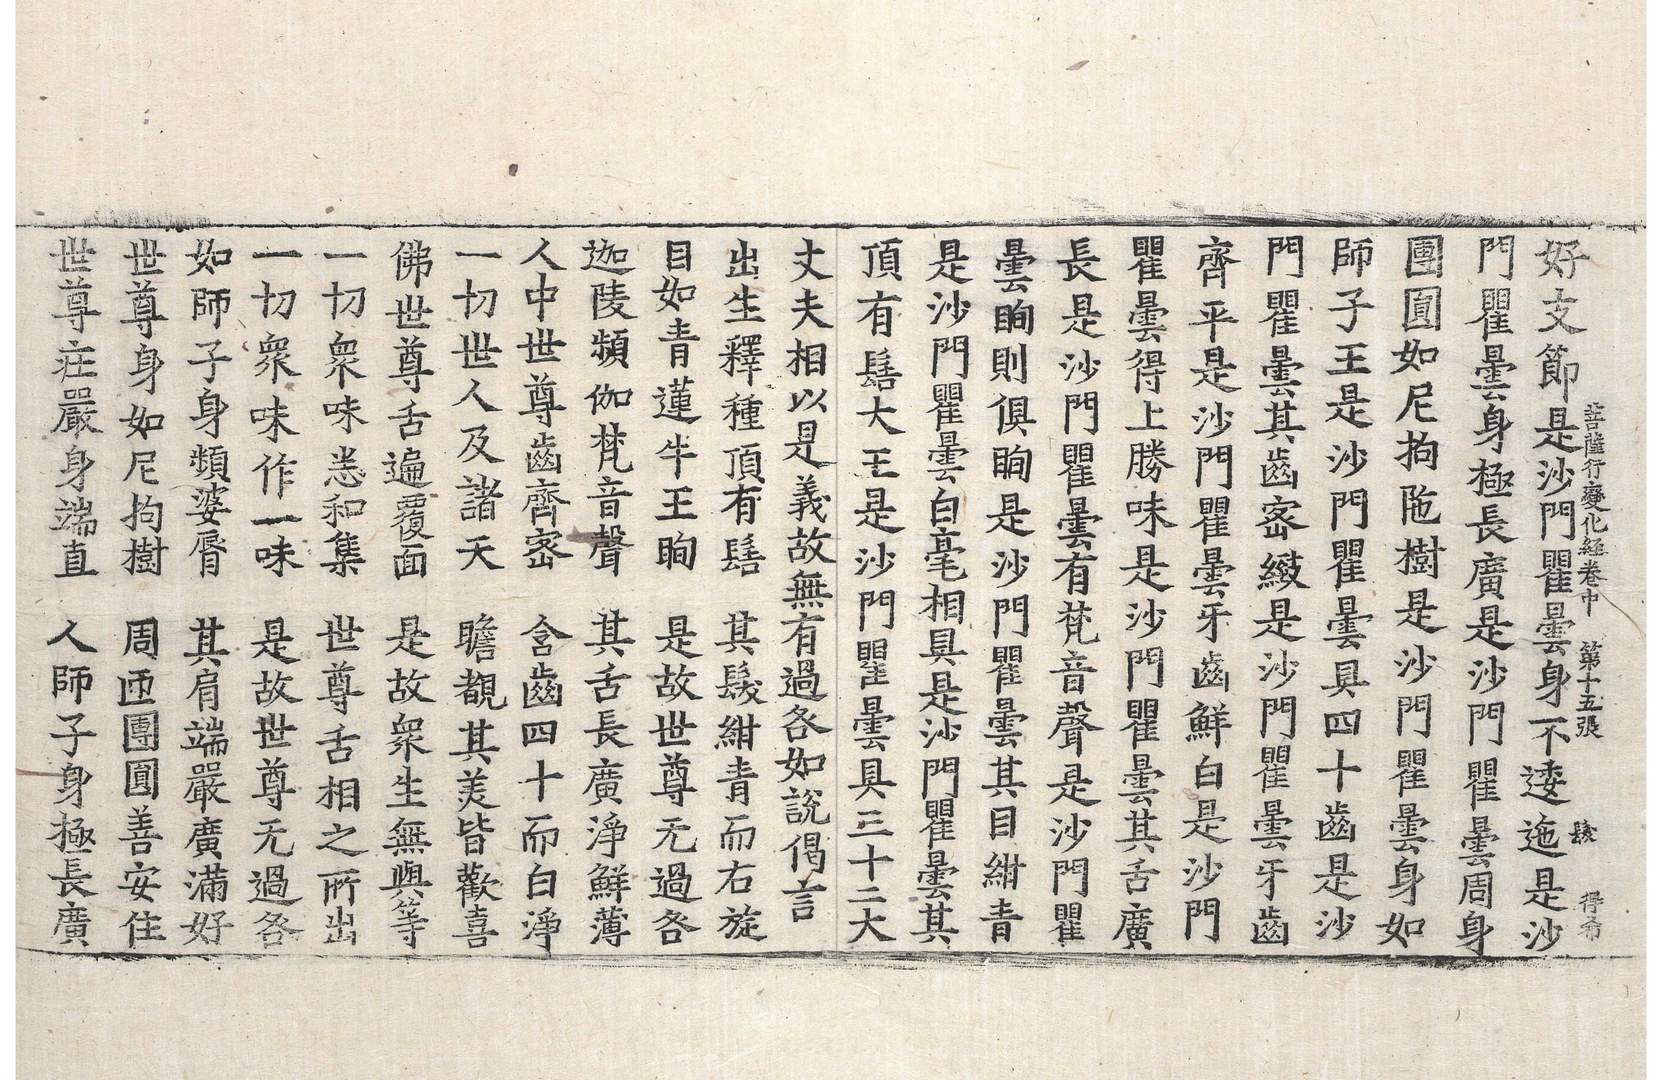 好支節是沙門瞿曇身不逶迤是沙
菩薩行變化経卷中 第十五張 得希
門瞿曇身極長廣是沙門瞿曇周身
團圓如尼拘陁樹是沙門瞿曇身如
師子王是沙門瞿曇具四十齒是沙
門瞿曇其齒密緻是沙門瞿曇牙齒
齊平是沙門瞿曇牙齒鮮白是沙門
瞿曇得上勝味是沙門瞿曇其舌廣
長是沙門瞿曇有梵音聲是沙門瞿
曇眴則俱眴是沙門瞿曇其目紺青
是沙門瞿曇白毫相具是沙門瞿曇其
頂有髻大王是沙門瞿曇具三十二大
丈夫相以是義故無有過各如說偈言
出生釋種頂有髻 其髮紺青而右旋
目如青蓮牛王眴 是故世尊无過各
迦陵頻伽梵音聲 其舌長廣淨鮮薄
人中世尊齒齊密 含齒四十而白淨
一切世人及諸天 瞻覩其美皆歡喜
佛世尊舌遍覆面 是故衆生無與等
一切衆味悉和集 世尊舌相之所出
一切衆味作一味 是故世尊无過各
如師子身頻婆脣 其肩端嚴廣滿好
世尊身如尼拘樹 周匝團圓善安住
世尊莊嚴身端直 人師子身極長廣